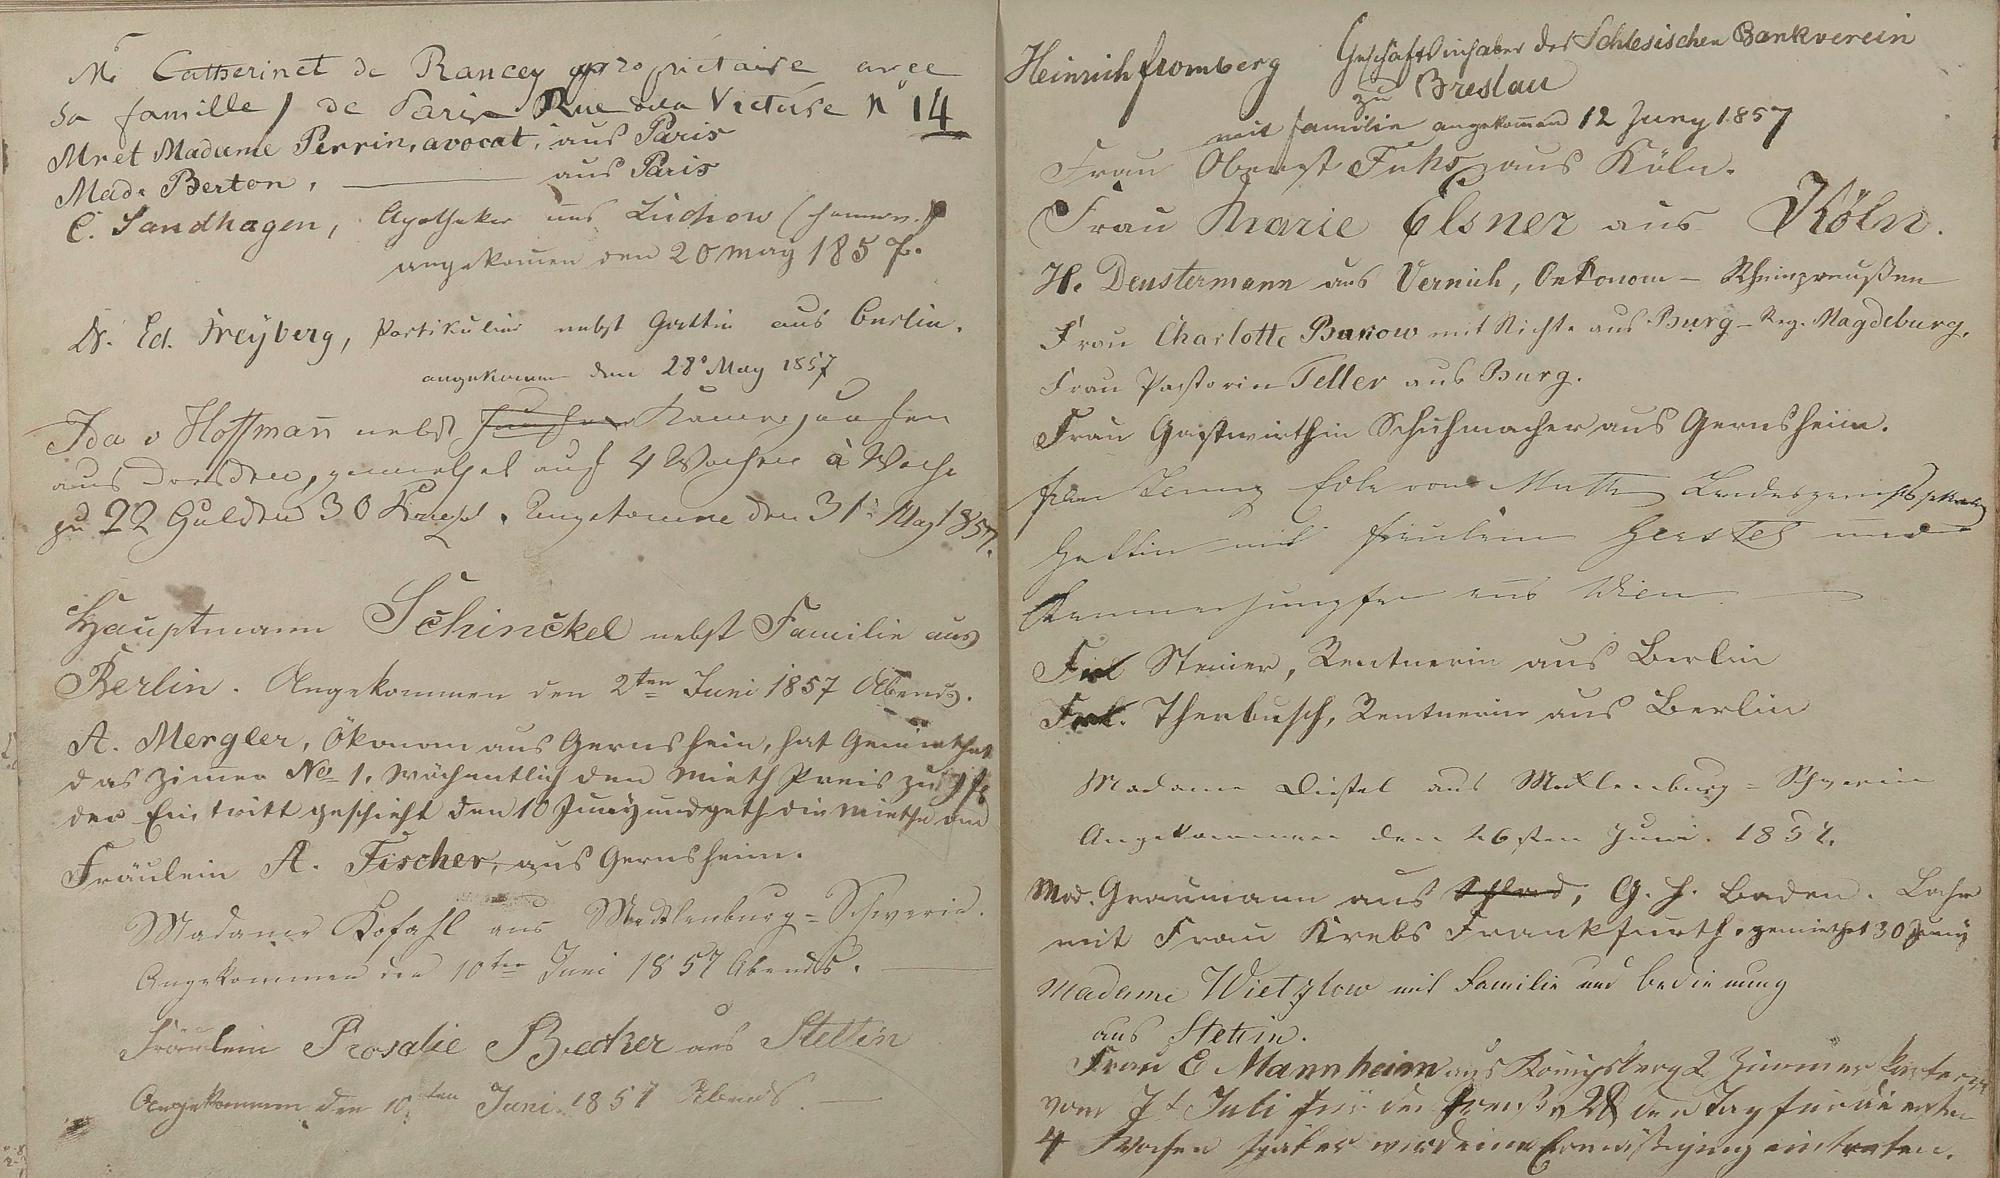 Mr Catherinet de Rancey propriétaire avec
sa famille, de Paris Rue de la Victoire No 14
Mr et Madame Perrin, avocat, aus Paris
Made Berton, aus Paris
C. Sandhagen, Apotheker aus Lüchow (Hannov.)
angekommen den 20 May 1857.
Dr. Ed. Freyberg, Partikulier nebst Gattin aus Berlin.
angekommen den 28 May 1857
Ida v Hoffmann nebst Kammerjungfer
aus Dresden, gemiethet auf 4 Wochen à Woche
zu 22 Gulden 30 Kreuzer. Angekommen den 31 May 1857.
Hauptmann Schinckel nebst Familie aus
Berlin. Angekommen den 2ten Juni 1857 Abends.
A. Mergler, Ökonom aus Gernsheim, hat Gemiethet
das Zimmer No 1. wöchentlich den Mieth Preis zu 9 fl
der Eintritt geschieht den 10 Juny und geth die Miethe an
Fräulein A. Fischer, aus Gernsheim.
Madame Kofahl aus Mecklenburg=Schwerin.
Angekommen den 10ten Juni 1857 Abends.
Fräulein Rosalie Becker aus Stettin
Angekommen den 10ten Juni 1857 Abends.
Heinrich Fromberg Geschäftsinhaber des Schlesischen Bankverein
zu Breslau
mit Familie angekommen 12 Juny 1857
Frau Oberst Fuhs aus Köln.
Frau Marie Elsner aus Köln.
H. Deustermann aus Vernich, Oekonom - Rheinpreußen
Frau Charlotte Bukow mit Nichte aus Burg - Reg. Magdeburg.
Frau Pastorin Teller aus Burg.
Frau Gastwirthin Schuhmacher aus Gernsheim.
Frau Jenny Edle von Muth Landesgerichts
Gattin mit Fräulein Gerstel und
Kammerjungfer aus Wien
Frl Steiner, Rentnerin aus Berlin
Frl. Therbusch, Rentnerin aus Berlin
Madame Diestel aus Meklenburg=Schwerin
Angekommen den 26sten Juni. 1857.
Mad. Graumann aus G. H. Baden. Lahr
mit Frau Krebs Frankfurth. gemiethet 30 Juny
Madame Wietzlow mit Familie und Bedienung
aus Stettin.
Frau E Mannheim aus Königsberg 2 Zimmer parterre
vom 7t Juli für die ersten
4 Wochen später wird eine Ermäßigung eintreten.